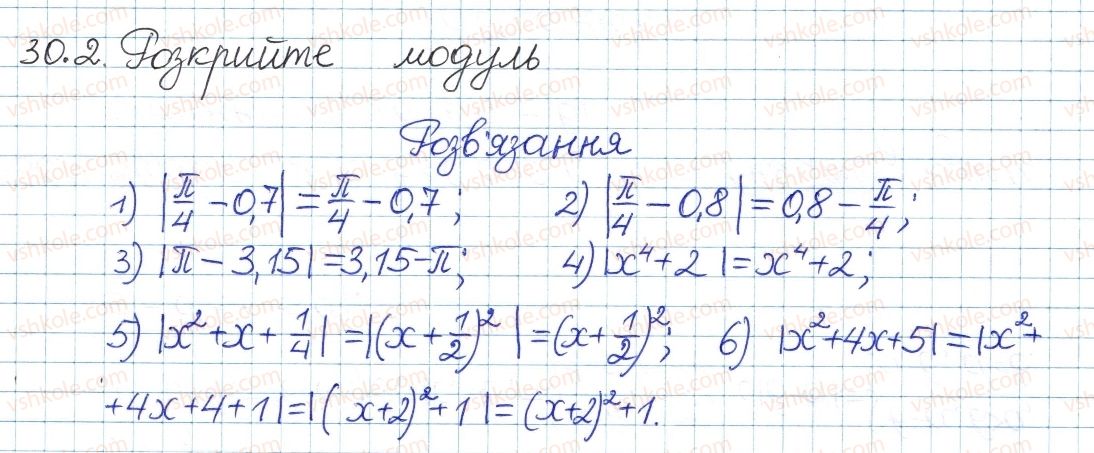 30.2. Розкрийте модуль
Розв'язання
1) |π/4 − 0,7| = π/4 − 0,7; 2) |π/4 − 0,8| = 0,8 − π/4;
3) |π − 3,15| = 3,15 − π; 4) |x⁴ + 2| = x⁴ + 2;
5) |x² + x + 1/4| = |(x + 1/2)²| = (x + 1/2)²; 6) |x² + 4x + 5| = |x² +
+ 4x + 4 + 1| = |(x + 2)² + 1| = (x + 2)² + 1.